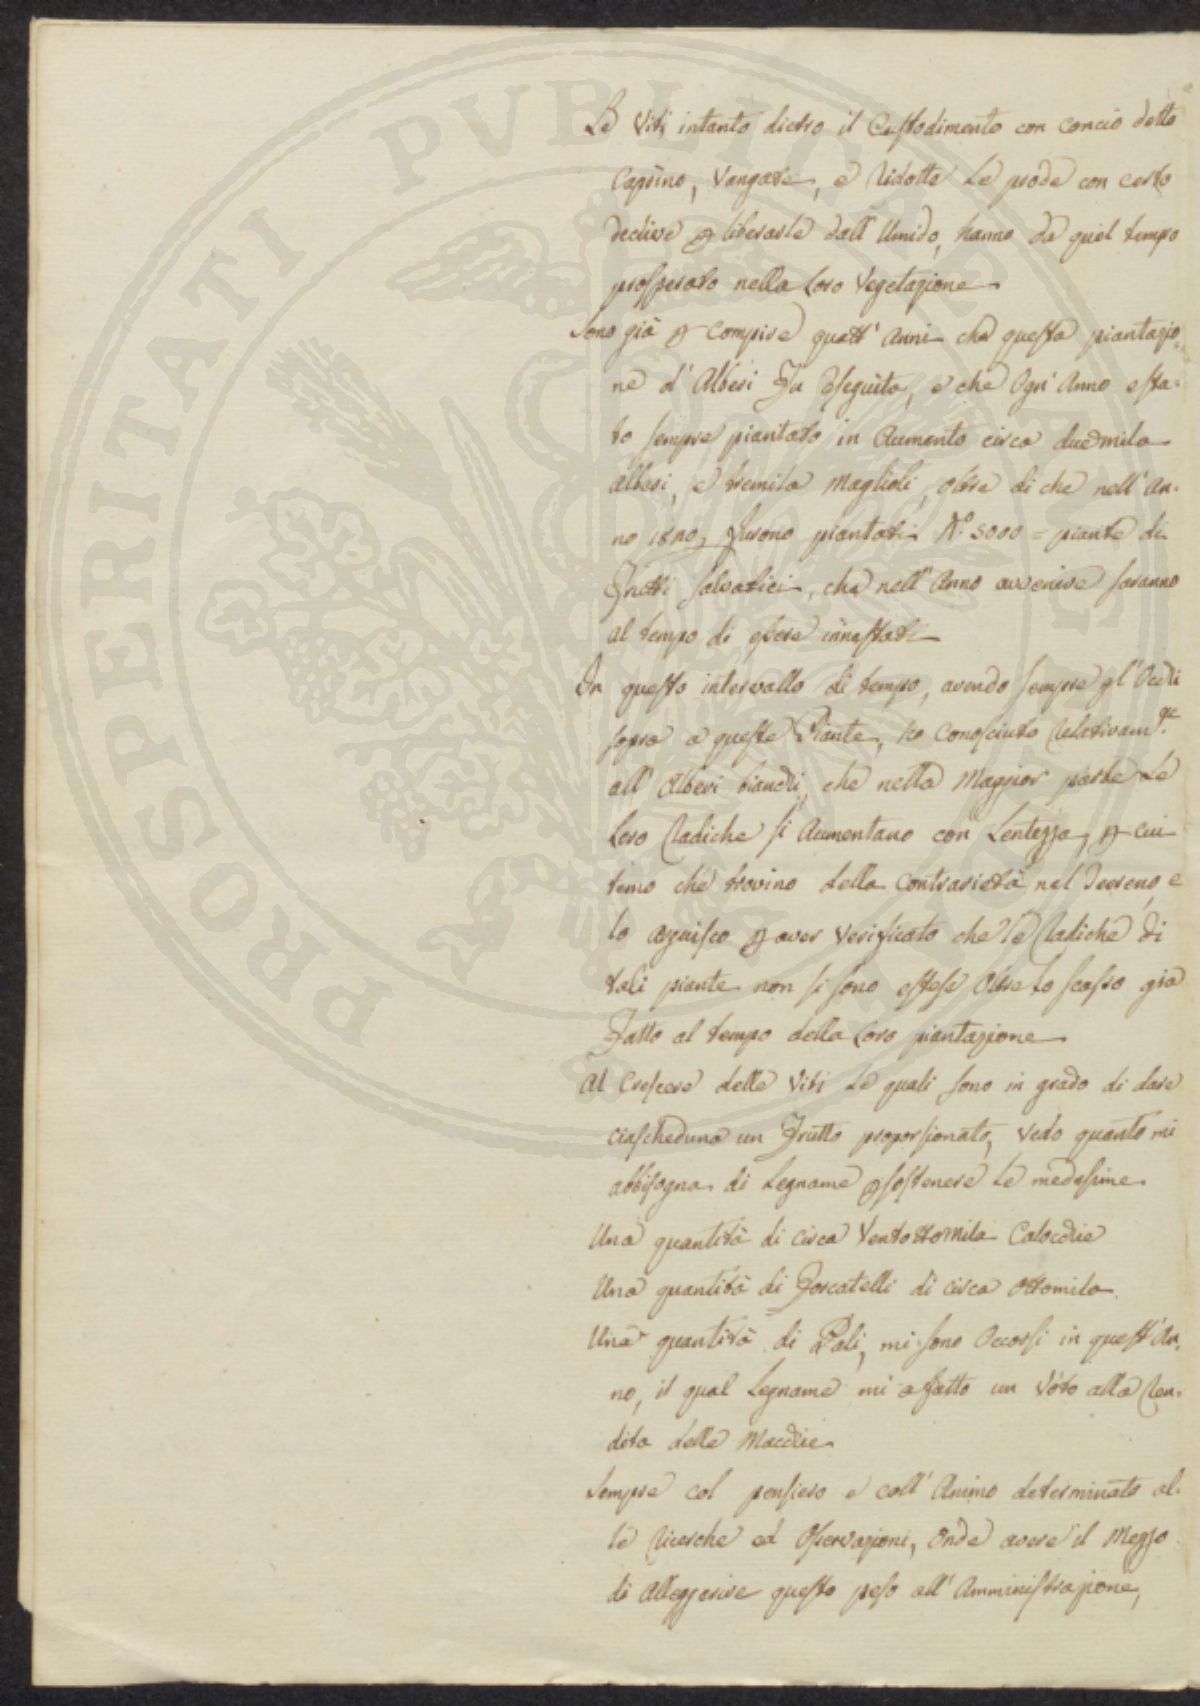 PROSPERITATI PVBLICAE
Le Viti intanto dietro il Custodimento con concio detto
Caprino, Vangate, e ridotte le prode con certo
declive p liberarle dall'Umido, hanno da quel tempo
prosperato nella loro Vegetazione
Sono già p compire quatt'Anni che questa piantazio,
ne d'Alberi Fu Eseguita, e che Ogn'Anno esta=
to sempre piantato in Aumento circa duemila
Alberi, e tremila Maglioli, Oltre di che nell'An=
no 1820, Furono piantati N.° 5000 = piante di
Frutti Salvatici, che nell'Anno avvenire saranno
al tempo di essere innestati
In questo intervallo di tempo, avendo sempre gl'Occhi
sopra a queste Piante, ho conosciuto Relativam.te
all'Alberi bianchi, che nella Maggior parte Le
Loro Radiche si Aumentano con Lentezza, p cui
temo che trovino della contrarietà nel Terreno, e
lo arguisco p aver Verificato che le Radiche di
tali piante non si sono estese Oltre lo scasso già
Fatto al tempo della loro piantazione
Al crescere delle Viti le quali sono in grado di dare
ciascheduna un Frutto proporsionato, vedo quanto mi
abbisogna di Legname p sostenere le medesime
Una quantità di circa Ventottomila Calocchie
Una quantità di Forcatelli di circa Ottomila
Una quantità di Pali, mi sono Occorsi in quest'An,
no, il qual Legname mi a fatto un Vòto alla Ren=
dita delle Macchie
Sempre col pensiero e coll'Animo determinato al=
le Ricerche ed Osservazioni, Onde avere il Mezzo
di Alleggerire questo peso all'Amministrazione,